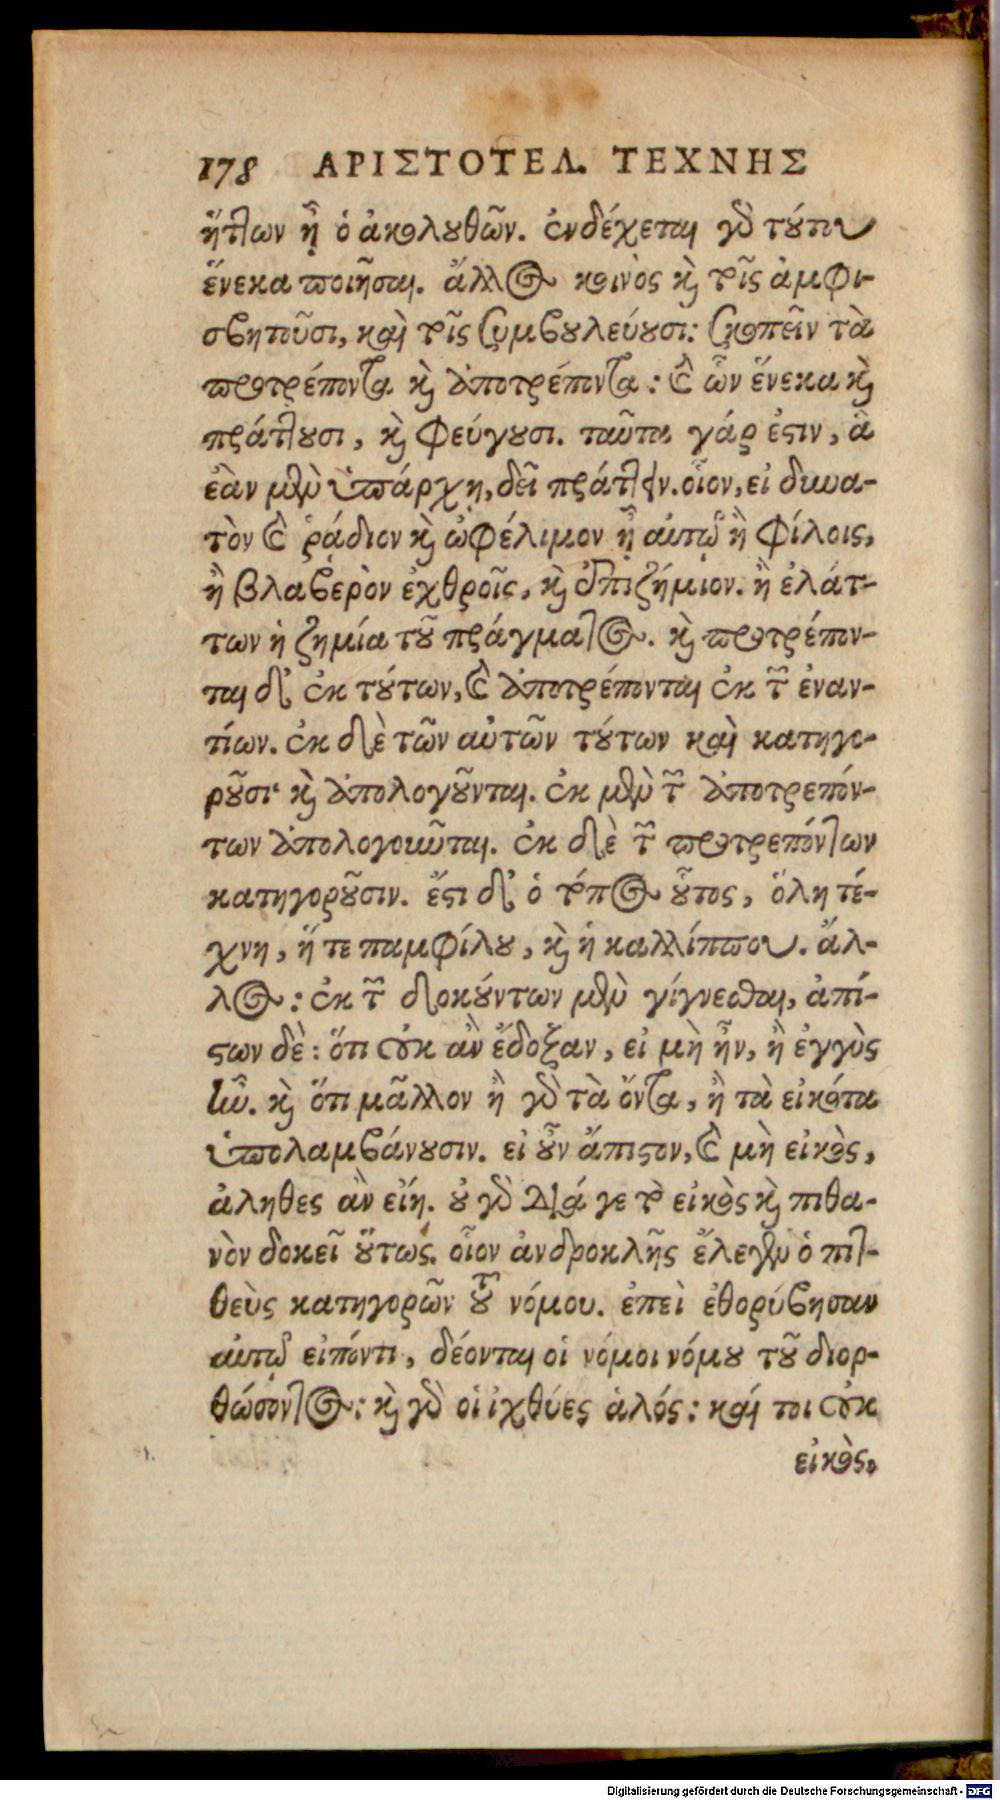 178 ΑΡΙΣΤΟΤΕΛ. ΤΕΧΝΗΣ
ἥττων ᾖ ὁ ἀκολουθῶν. ἐνδέχεται γὰρ τούτου
ἕνεκα ποιῆσαι. ἄλλος κοινὸς καὶ τοῖς ἀμφι-
σβητοῦσι, καὶ τοῖς συμβουλεύουσι: σκοπεῖν τὰ
προτρέποντα καὶ ἀποτρέποντα: καὶ ὧν ἕνεκα καὶ
πράττουσι, καὶ φεύγουσι. ταῦτα γάρ ἐστιν, ἃ
ἐὰν μὲν ὑπάρχῃ, δεῖ πράττειν. οἷον, εἰ δυνα-
τὸν καὶ ῥᾴδιον καὶ ὠφέλιμον ᾖ αὐτῷ ἢ φίλοις,
ἢ βλαβερὸν ἐχθροῖς, καὶ ἐπιζήμιον. ἢ ἐλάτ-
των ἡ ζημία τοῦ πράγματος. καὶ προτρέπον-
ται δ' ἐκ τούτων, καὶ ἀποτρέπονται ἐκ τῶν ἐναν-
τίων. ἐκ δὲ τῶν αὐτῶν τούτων καὶ κατηγο-
ροῦσι καὶ ἀπολογοῦνται. ἐκ μὲν τῶν ἀποτρεπόν-
των ἀπολογοῦνται. ἐκ δὲ τῶν προτρεπόντων
κατηγοροῦσιν. ἔστι δ' ὁ τόπος οὗτος, ὅλη τέ-
χνη, ἥ τε παμφίλου, καὶ ἡ καλλίππου. ἄλ-
λος: ἐκ τῶν δοκούντων μὲν γίγνεσθαι, ἀπί-
στων δὲ: ὅτι οὐκ ἂν ἔδοξαν, εἰ μὴ ἦν, ἢ ἐγγὺς
ἦν. καὶ ὅτι μᾶλλον ἢ γὰρ τὰ ὄντα, ἢ τὰ εἰκότα
ὑπολαμβάνουσιν. εἰ οὖν ἄπιστον, καὶ μὴ εἰκὸς,
ἀληθες ἂν εἴη. οὐ γὰρ διά γε τὸ εἰκὸς καὶ πιθα-
νὸν δοκεῖ οὕτως. οἷον ἀνδροκλῆς ἔλεγεν ὁ πιτ-
θεὺς κατηγορῶν τοῦ νόμου. ἐπεὶ ἐθορύβησαν
αὐτῷ εἰπόντι, δέονται οἱ νόμοι νόμου τοῦ διορ-
θώσοντος: καὶ γὰρ οἱ ἰχθύες ἁλός: καί τοι οὐκ
εἰκὸς.
Digitalisierung gefördert durch die Deutsche Forschungsgemeinschaft - DFG